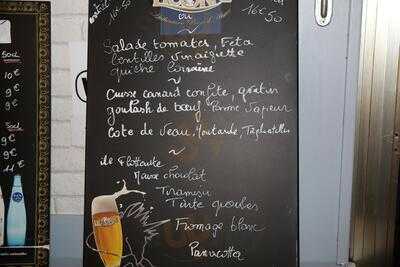 16€50
ou
16€50
Salade tomates, Feta
Lentilles vinaigrette
quiche lorraine
~
Cuisse canard confite, gratin
goulash de bœuf, Pomme Vapeur
Cote de veau, Moutarde, Tagliatelles
~
ile Flottante
Mousse chocolat
Tiramisu
Tarte
Fromage blanc
Pannacotta
50cl
10€
9€
9€
50cl
9€
9€
14€